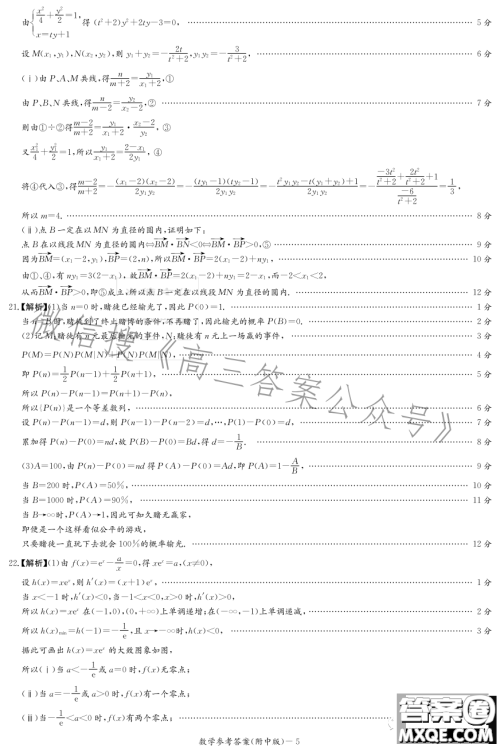 由{x²/4+y²/2=1, x=ty+1 得 (t²+2)y²+2ty−3=0, …… 5 分
设 M(x₁,y₁),N(x₂,y₂),则 y₁+y₂=−2t/(t²+2),y₁y₂=−3/(t²+2), …… 6 分
(ⅰ)由 P、A、M 共线,得 n/(m+2)=y₁/(x₁+2),①
由 P、B、N 共线,得 n/(m−2)=y₂/(x₂−2),② …… 7 分
则由①÷②得 (m−2)/(m+2)=y₁/(x₁+2)·(x₂−2)/y₂, ③
又 x₁²/4+y₁²/2=1,所以 y₁/(x₁+2)=(2−x₁)/2y₁, ④
将④代入③,得 (m−2)/(m+2)=−(x₁−2)(x₂−2)/2y₁y₂=−(ty₁−1)(ty₂−1)/2y₁y₂=−(t²y₁y₂−t(y₁+y₂)+1)/2y₁y₂=−(−3t²/(t²+2)+2t²/(t²+2)+1)/(−6/(t²+2))=1/3,
所以 m=4. …… 8 分
(ⅱ)点 B 一定在以 MN 为直径的圆内,证明如下:
点 B 在以线段 MN 为直径的圆内⇔BM·BN<0⇔BM·BP>0,⑤ …… 9 分
因为 BM=(x₁−2,y₁),BP=(2,n),所以 BM·BP=2(x₁−2)+ny₁, …… 10 分
由①,④,有 ny₁=3(2−x₁), 故 BM·BP=2(x₁−2)+ny₁=2−x₁,而−2<x₁<2,
从而 BM·BP>0,即⑤成立,所以点 B 一定在以线段 MN 为直径的圆内. …… 12 分
21.【解析】(1)当 n=0 时,赌徒已经输光了,因此 P(0)=1. …… 1 分
当 n=B 时,赌徒到了终止赌博的条件,不再赌了,因此输光的概率 P(B)=0. …… 2 分
(2)记 M:赌徒有 n 元最后输光的事件,N:赌徒有 n 元上一场赢的事件, …… 3 分
P(M)=P(N)P(M|N)+P(N)P(M|N), …… 4 分
即 P(n)=1/2P(n−1)+1/2P(n+1), …… 5 分
所以 P(n)−P(n−1)=P(n+1)−P(n),
所以{P(n)}是一个等差数列, …… 6 分
设 P(n)−P(n−1)=d,则 P(n−1)−P(n−2)=d,…,P(1)−P(0)=d, …… 7 分
累加得 P(n)−P(0)=nd,故 P(B)−P(0)=Bd,得 d=−1/B. …… 8 分
(3)A=100,由 P(n)−P(0)=nd 得 P(A)−P(0)=Ad,即 P(A)=1−A/B, …… 9 分
当 B=200 时,P(A)=50%, …… 10 分
当 B=1000 时,P(A)=90%, …… 11 分
当 B→∞时,P(A)→1,因此可知久赌无赢家,
即便是一个这样看似公平的游戏,
只要赌徒一直玩下去就会 100%的概率输光. …… 12 分
22.【解析】(1)由 f(x)=eˣ−a/x=0,得 xeˣ=a,(x≠0),
设 h(x)=xeˣ,则 h′(x)=(x+1)eˣ, …… 1 分
当 x<−1 时,h′(x)<0,当−1<x<0,x>0 时,h′(x)>0,
所以 h(x)=xeˣ 在(−1,0),(0,+∞)上单调递增;在(−∞,−1)上单调递减, …… 2 分
所以 h(x)min=h(−1)=−1/e,且 x→−∞时,h(x)<0, …… 3 分
据此可画出 h(x)=xeˣ 的大致图象如图,
所以(ⅰ)当 a<−1/e或 a=0 时,f(x)无零点;
(ⅱ)当 a=−1/e或 a>0 时,f(x)有一个零点;
(ⅲ)当−1/e<a<0 时,f(x)有两个零点;
数学参考答案(附中版)－5
微信搜《高三答案公众号》
答案圈
MXQE.COM